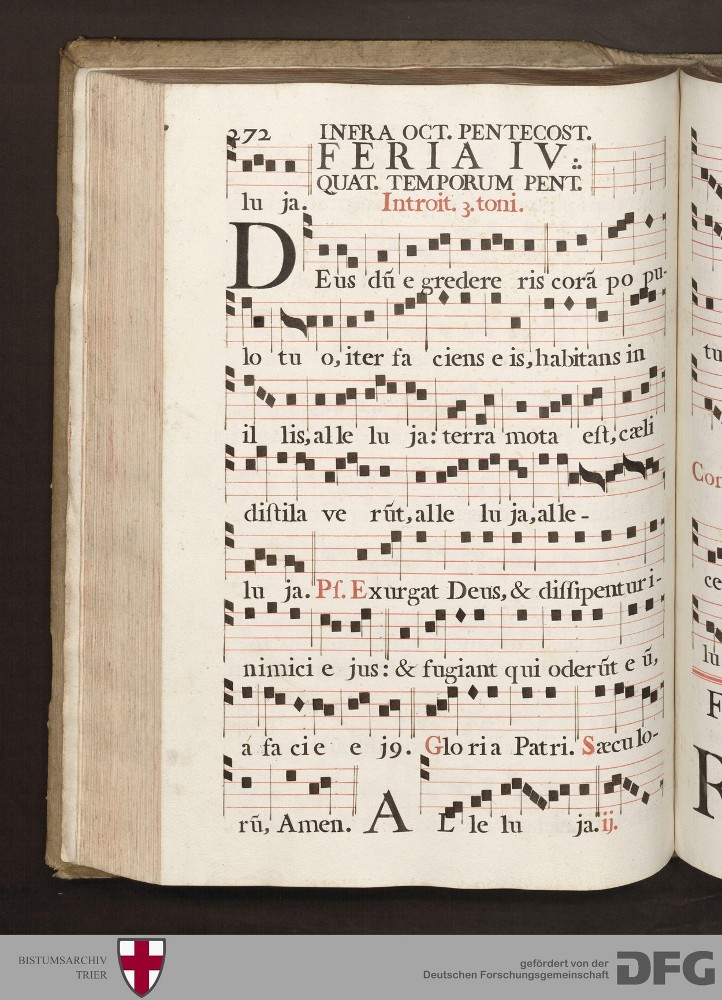 272 INFRA OCT. PENTECOST.
FERIA IV:.
QUAT. TEMPORUM PENT.
lu ja. Introit. 3. toni.
DEus dũ e gredere ris corã po pu-
lo tu o, iter fa ciens e is, habitans in
il lis, al le lu ja: terra mota eſt, cæli
diſtila ve rũt, alle lu ja, alle-
lu ja. Pſ. Exurgat Deus, & diſſipentur i-
nimici e jus: & fugiant qui oderũt e ũ,
á fa cie e j9. Glo ria Patri. Sæcu lo-
rũ, Amen. AL le lu ja. ij.
tu
Cor
ce
lu
F
R
BISTUMSARCHIV
TRIER
gefördert von der
Deutschen Forschungsgemeinschaft
DFG